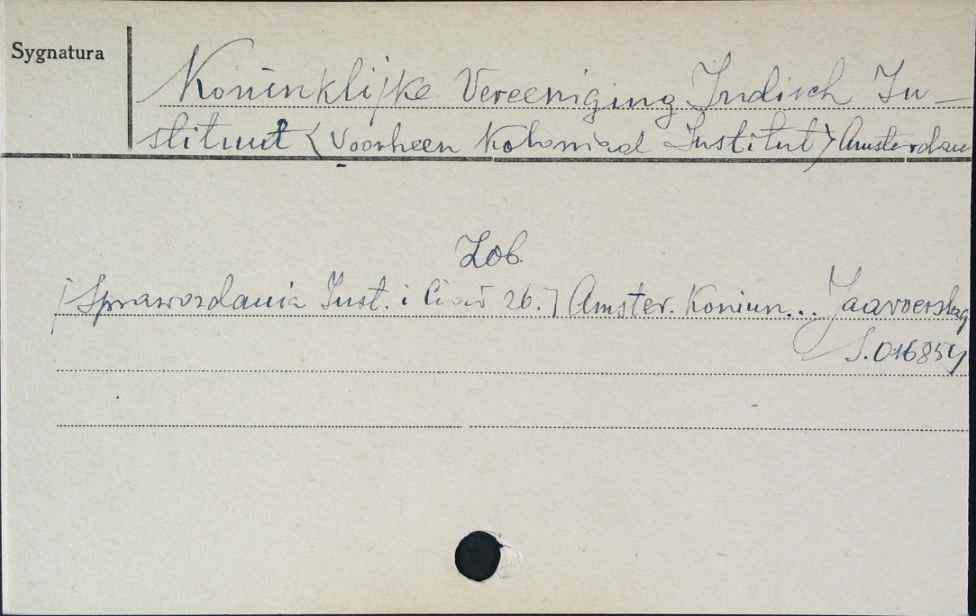 Sygnatura
Koninklijke Vereeniging Indisch In-
stituut (Voorheen Koloniaal Institut) Amsterdam
Zob.
[Sprawozdania Inst. i Ciał 26.] Amster. Konin... Jaarverslag
S.016854